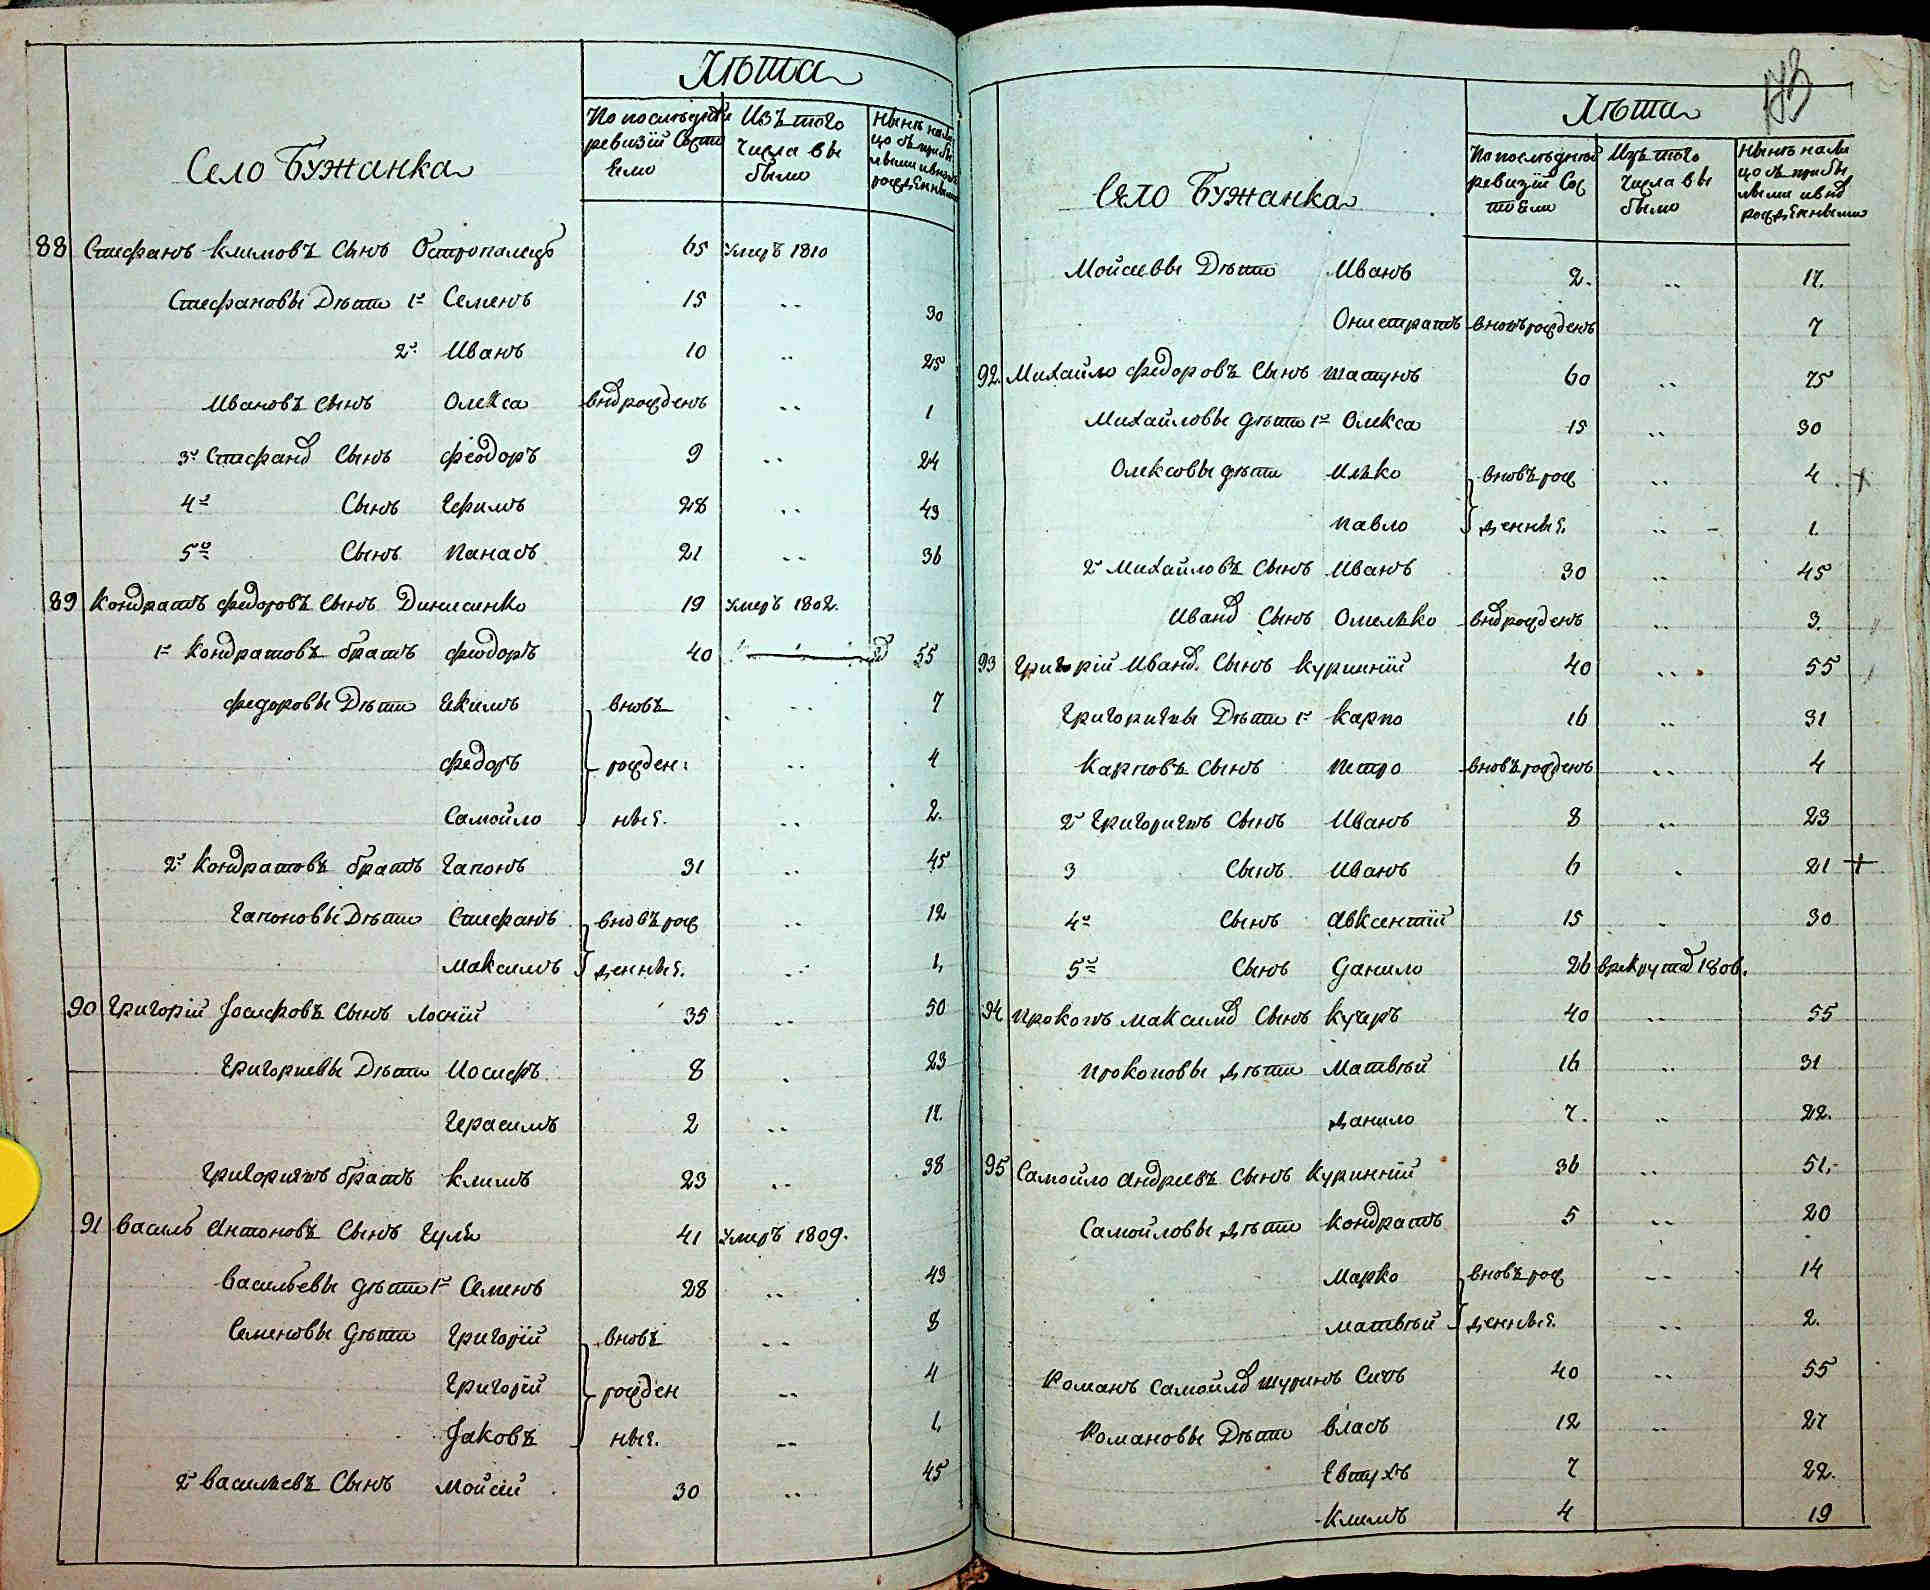 Лѣта
Село Бужанка
По последней ревизіи Состояло
Изъ того числа выбыло
Нынѣ на лицо съ прибылыми и вновь рожденными
88 Стефанъ Климовъ Сынъ Остропалецъ 65 умеръ 1810
Стефановы Дѣти 1й Семенъ 15 .. 30
2й Иванъ 10 .. 25
Ивановъ Сынъ Олекса вновь рожденъ .. 1
3й Стефанов Сынъ Феодоръ 9 .. 24
4й Сынъ Юхимъ 28 .. 43
5й Сынъ Панасъ 21 .. 36
89 Кондратъ Федоровъ Сынъ Динисенко 19 умеръ 1802.
1й Кондратовъ братъ Феодоръ 40 55
Федоровы Дѣти Екимъ вновь .. 7
Федоръ рожден: .. 4
Самойло ные. .. 2.
2й Кондратовъ братъ Гапонъ 31 .. 45
Гапоновы Дѣти Стефанъ вновь рож .. 12
Максимъ денные. .. 1.
90 Григорій Іосифовъ Сынъ Лосній 35 .. 50
Григориевы Дѣти Иосифъ 8 . 23
Герасимъ 2 .. 17.
Григориевъ братъ Климъ 23 .. 38
91 Василь Антоновъ Сынъ Гуля 41 умеръ 1809.
Васильевы дѣти 1й Семенъ 28 .. 43
Семеновы дѣти Григорій вновь .. 8
Григорій рожден .. 4
Яковъ ные. .. 1.
2й Васильевъ Сынъ Мойсей 30 .. 45
Лѣта
Село Бужанка
По последней ревизіи Состояло
Изъ того числа выбыло
Нынѣ на лицо съ прибылыми и вновь рожденными
Мойсеевы Дѣти Иванъ 2. .. 17.
Онистратъ вновь рожденъ 7
92. Михайло Федоровъ Сынъ Шатунъ 60 .. 75
Михайловы дѣти 1й Олекса 15 .. 30
Олексовы дѣти Илько вновь рож .. 4
Павло денные. .. 1.
2й Михайловъ Сынъ Иванъ 30 .. 45
Иванов Сынъ Омелько вновь рожденъ .. 3.
93 Григорій Иванов. Сынъ Куринній 40 .. 55
Григориевы Дѣти 1й Карпо 16 .. 31
Карповъ Сынъ Петро вновь рожденъ .. 4
2й Григориевъ Сынъ Иванъ 8 .. 23
3 Сынъ Иванъ 6 . 21 +
4й Сынъ Авксентій 15 . 30
5й Сынъ Данило 26 в рекруты 1806.
94 Прокопъ Максимов Сынъ Кучеръ 40 .. 55
Прокоповы дѣти Матвѣй 16 .. 31
Данило 7. .. 22.
95 Самойло Андреевъ Сынъ Куринній 36 .. 51.
Самойловы дѣти Кондратъ 5 .. 20
Марко вновь рож .. 14
Матвѣй денные. .. 2.
Романъ Самойлов шуринъ Сичъ 40 .. 55
Романовы Дѣти Власъ 12 .. 27
Евтухъ 7 22.
Климъ 4 19